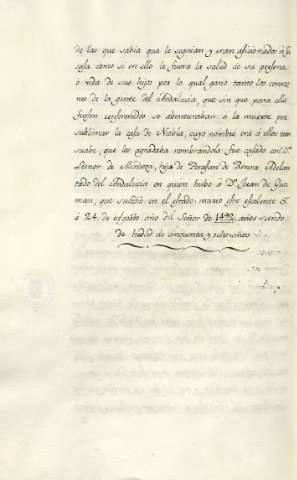 de las que sabia que le seguian y eran aficionados à su
casa como si en ello le fuera la salud de su persona
ò vida de sus hijos por lo qual gano tanto los corazo
nes de la gente del Andalucia, que sin que para ello
fuesen conferendos se abenturaban à la muerte por
sublimar la casa de Niebla, cuyo nombre era à ellos tan
suave, que les agradaba nombrandolo: fue casado con D.ª
Leonor de Mendoza, hija de Perafan de Rivera Adelan
tado del Andalucia en quien hubo à D.n Juan de Guz
man, que sucediò en el estado: murio este excelente S.
à 24. de Agosto año del Señor de 1492, años siendo
de hedad de cinquenta y ocho años